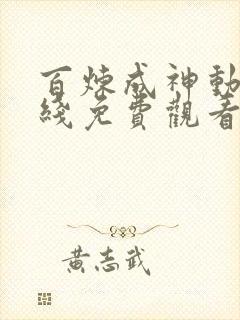 百煉成神動
綫免費觀看
黃志武